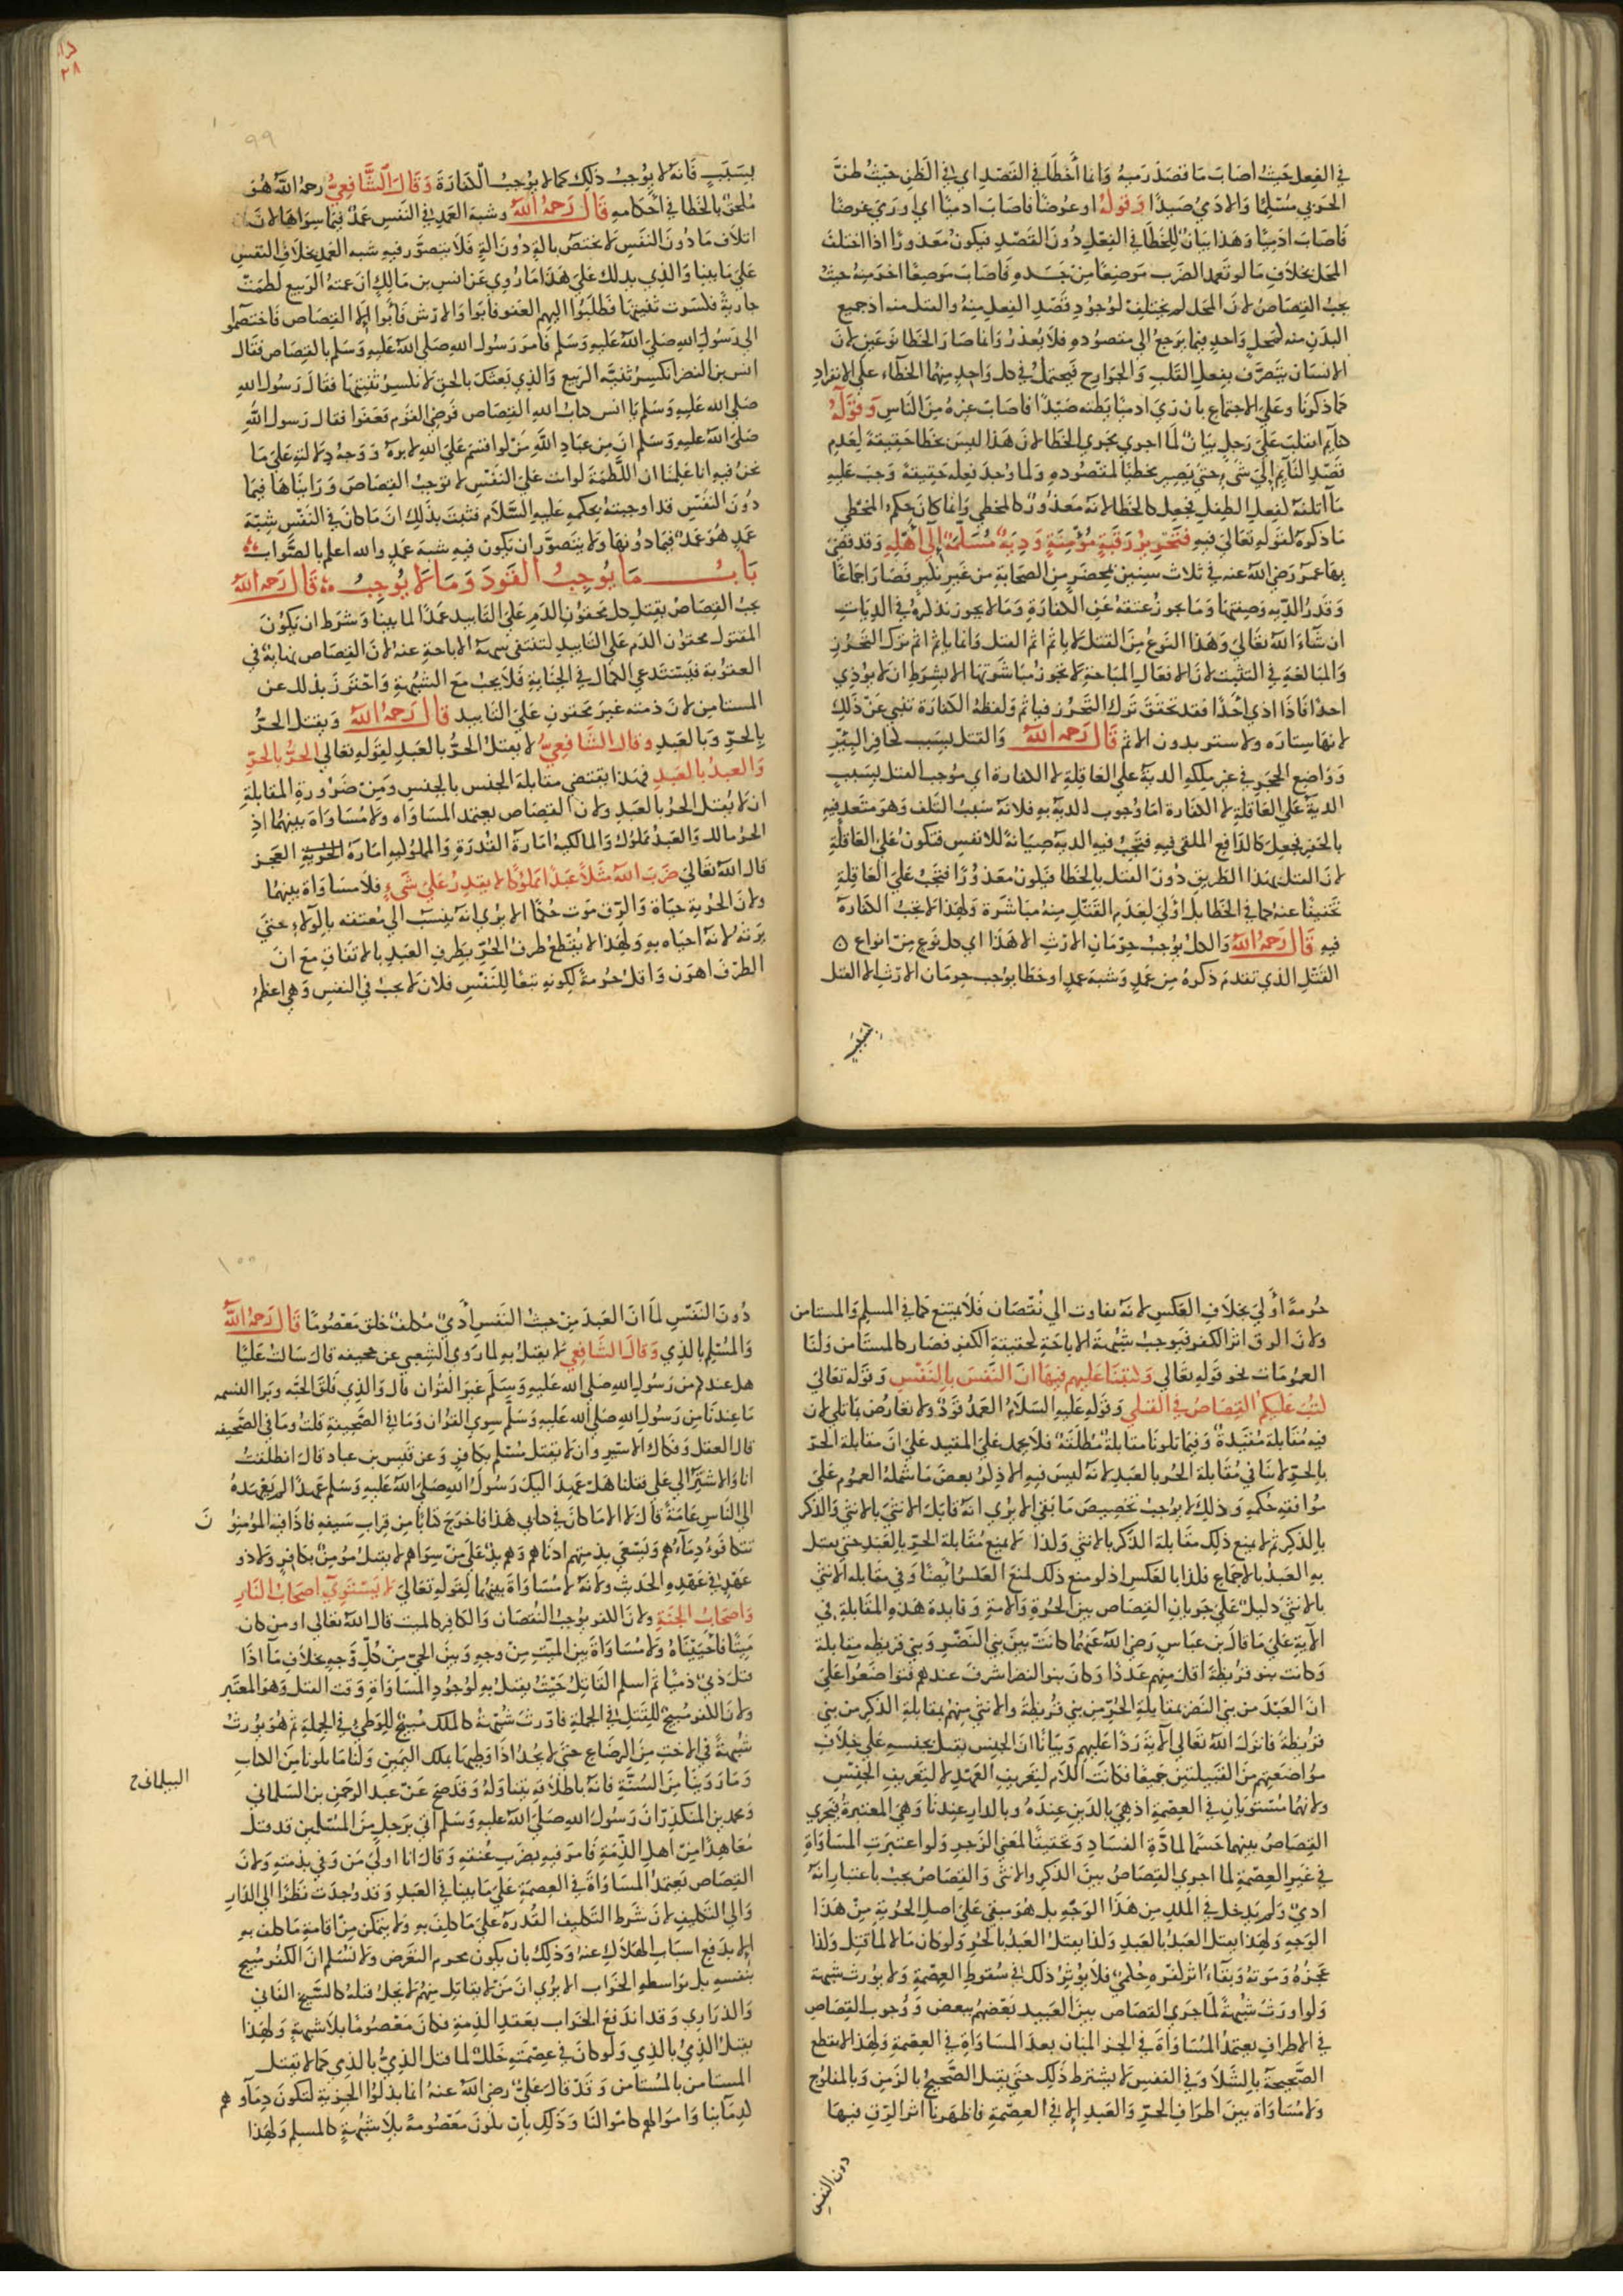 في الفعل حيث اصاب ما قصد رميه وانما أخطأ في القصد اي في الظن حيث ظن
الحربي مسلما والادمي صيدا وقوله او غرضا فاصاب ادميا اي او رمى غرضا
فاصاب ادميا وهذا بيان للخطا في الفعل دون القصد فيكون معذورا اذا اختلف
المحل بخلاف ما لو تعمد الضرب موضعا من جسده فاصاب موضعا اخر منه حيث
يجب القصاص لان المحل لم يختلف لوجود قصد الفعل منه والقتل منه اذ جميع
البدن منه كمحل واحد فيما يرجع الى مقصوده فلا يعذر وانما صار الخطا نوعين لان
الانسان يتصرف بفعل القلب والجوارح فيحتمل في كل واحد منهما الخطاء على الانفراد
كما ذكرنا وعلى الاجتماع بان رمى ادميا يظنه صيدا فاصاب غيره من الناس وقوله
كنايم انقلب على رجل بيان لما اجري مجرى الخطا لان هذا ليس بخطا حقيقة لعدم
قصد النايم الى شيء حتى يصير مخطيا لمقصوده ولما وجد فعله حقيقة وجب عليه
ما اتلفه لفعل الطفل فجعل كالخطا لانه معذور كالمخطي وانما كان حكم المخطي
ما ذكره لقوله تعالى فيه فتحرير رقبة مؤمنة ودية مسلمة الى أهله وقد قضى
بها عمر رضي الله عنه في ثلاث سنين بمحضر من الصحابة من غير نكير فصار اجماعا
وقدر الدية وصفتها وما يجوز عتقه عن الكفارة وما لا يجوز نذكره في الديات
ان شاء الله تعالى وهذا النوع من القتل لا ياثم اثم القتل وانما ياثم اثم ترك التحرز
والمبالغة في التثبت لان الافعال المباحة لا تجوز مباشرتها الا بشرط ان لا يوذي
احدا فاذا اذى أحدا فقد تحقق ترك التحرز فياثم ولفظه الكفارة تنبي عن ذلك
لانها ستارة ولا ستر بدون الاثم قال رحمه الله والقتل بسبب كحافر البئر
وواضع الحجر في غير ملكه الدية على العاقلة لا الكفارة اي موجب القتل بسبب
الدية على العاقلة لا الكفارة اما وجوب الدية به فلانه سبب التلف وهو متعد فيه
بالحفر فجعل كالدافع الملقي فيه فتجب فيه الدية صيانة للانفس فتكون على العاقلة
لان القتل بهذا الطريق دون القتل بالخطا فيكون معذورا فتجب على العاقلة
تخفيفا عنه كما في الخطا بل اولى لعدم القتل منه مباشرة ولهذا لا تجب الكفارة
فيه قال رحمه الله والكل يوجب حرمان الارث الا هذا اي كل نوع من انواع ه
القتل الذي تقدم ذكره من عمد وشبه عمد او خطا يوجب حرمان الارث الا القتل
بسبب
٢٨
٩٩
بسبب فانه لا يوجب ذلك كما لا يوجب الكفارة وقال الشافعي رحمه الله هو
ملحق بالخطا في أحكامه قال رحمه الله وشبه العمد في النفس عمد فيما سواها لان
اتلاف ما دون النفس لا يختص بالة دون الة فلا يتصور فيه شبه العمد بخلاف النفس
على ما بينا والذي يدلك على هذا ما روي عن انس بن مالك ان عمته الربيع لطمت
جارية فكسرت ثنيتها فطلبوا اليهم العفو فابوا والارش فابوا الا القصاص فاختصموا
الى رسول الله صلى الله عليه وسلم فامر رسول الله صلى الله عليه وسلم بالقصاص فقال
انس بن النضر اتكسر ثنية الربيع والذي بعثك بالحق لا تكسر ثنيتها فقال رسول الله
صلى الله عليه وسلم يا انس كتاب الله القصاص فرضي القوم فعفوا فقال رسول الله
صلى الله عليه وسلم ان من عباد الله من لو اقسم على الله لابره ووجه دلالته على ما
نحن فيه انا علمنا ان اللطمة لو اتت على النفس لا توجب القصاص ورايناها فيما
دون النفس قد اوجبته بحكمه عليه السلام فثبت بذلك ان ما كان في النفس شبه
عمد هو عمد فيما دونها ولا يتصور ان يكون فيه شبه عمد والله اعلم بالصواب
باب ما يوجب القود وما لا يوجب قال رحمه الله
يجب القصاص بقتل كل محقون الدم على التابيد عمدا لما بينا وشرط ان يكون
المقتول محقون الدم على التابيد لتنتفى شبهة الاباحة عنه لان القصاص نهاية في
العقوبة فيستدعي الكمال في الجناية فلا يجب مع الشبهة واحترز بذلك عن
المستامن لان ذمته غير محقون على التابيد قال رحمه الله ويقتل الحر
بالحر وبالعبد وقال الشافعي لا يقتل الحر بالعبد لقوله تعالى الحر بالحر
والعبد بالعبد فهذا يقتضي مقابلة الجنس بالجنس ومن ضرورة المقابلة
ان لا يقتل الحر بالعبد ولان القصاص يعتمد المساواه ولا مساواة بينهما اذ
الحر مالك والعبد مملوك والمالكية امارة القدرة والمملوكية امارة العجز
قال الله تعالى ضرب الله مثلا عبدا مملوكا لا يقدر على شيء فلا مساواة بينهما
ولان الحرية حياة والرق موت حكما الا يرى انه ينسب الى معتقه بالولاء حتى
يرثه لانه احياه به ولهذا لا يقطع طرف الحر بطرف العبد بالاتفاق مع ان
الطرف اهون واقل حرمة لكونه تبعا للنفس فلان لا يجب في النفس وهي اعظم
حرمة أولى بخلاف العكس لانه تفاوت الى نقصان فلا يمتنع كما في المسلم والمستامن
ولان الرق اثر الكفر فيوجب شبهة الاباحة لحقيقة الكفر فصار كالمستامن ولنا
العمومات نحو قوله تعالى وكتبنا عليهم فيها ان النفس بالنفس وقوله تعالى
كتب عليكم القصاص في القتلى وقوله عليه السلام العمد قود ولا تعارض بما تلي لان
فيه مقابلة مقيدة وفيما تلونا مقابلة مطلقة فلا يحمل على المقيد على ان مقابلة الحر
بالحر لا تنافي مقابلة الحر بالعبد لانه ليس فيه الا ذكر بعض ما شمله العموم على
موافقة حكمه وذلك لا يوجب تخصيص ما بقي الا يرى انه قابل الانثى بالانثى والذكر
بالذكر ثم لا يمنع ذلك مقابلة الذكر بالانثى ولذا لا يمنع مقابلة الحر بالعبد حتى يقتل
به العبد بالاجماع فكذا بالعكس اذ لو منع ذلك لمنع العكس ايضا وفي مقابلة الانثى
بالانثى دليل على جريان القصاص بين الحرة والامة وفايدة هذه المقابلة في
الاية على ما قال بن عباس رضي الله عنهما كانت بين بني النضير وبني قريظه مقابلة
وكانت بنو قريظة اقل منهم عددا وكان بنو النضير اشرف عندهم فتواضعوا على
ان العبد من بني النضير بمقابلة الحر من بني قريظة والانثى منهم بمقابلة الذكر من بني
قريظة فانزل الله تعالى الاية ردا عليهم وبيانا ان الجنس يقتل بجنسه على خلاف
مواضعتهم من القبيلتين جميعا فكانت اللام لتعريف العهد لا لتعريف الجنس
ولانهما مستويان في العصمة اذ هي بالدين عنده وبالدار عندنا وهي المعتبرة فيجري
القصاص بينهما حسما لمادة الفساد وتحقيقا لمعنى الزجر ولو اعتبرت المساواة
في غير العصمة لما اجرى القصاص بين الذكر والانثى والقصاص يجب باعتبار انه
ادمي ولم يدخل في الملك من هذا الوجه بل هو مبقى على اصل الحرية من هذا
الوجه ولهذا يقتل العبد بالعبد ولذا يقتل العبد بالحر ولو كان مالا لما قتل ولذا
عجزه وموته وبقاء اثر كفره حكمي فلا يوثر ذلك في سقوط العصمة ولا يورث شبهة
ولو اورث شبهة لما جرى القصاص بين العبيد بعضهم ببعض ووجوب القصاص
في الاطراف يعتمد المساواة في الجزء المبان بعد المساواة في العصمة ولهذا لا يقطع
الصحيحة بالشلا وفي النفس لا يشترط ذلك حتى يقتل الصحيح بالزمن وبالمفلوج
ولا مساواة بين اطراف الحر والعبد الا في العصمة فاظهرنا اثر الرق فيها
دون النفس
١٠٠
دون النفس لما ان العبد من حيث النفس أدمي مكلف خلق معصوما قال رحمه الله
والمسلم بالذمي وقال الشافعي لا يقتل به لما روى الشعبي عن جحيفه قال سالت عليا
هل عندكم من رسول الله صلى الله عليه وسلم غير القران قال والذي فلق الحبه وبرا النسمه
ما عندنا من رسول الله صلى الله عليه وسلم سوى القران وما في الصحيفة قلت وما في الصحيفه
قال العقل وفكاك الاسير وان لا يقتل مسلم بكافر وعن قيس بن عباد قال انطلقت
انا والاشتر الى علي فقلنا هل عهد اليك رسول الله صلى الله عليه وسلم عهدا لم يعهده
الى الناس عامة قال لا الا ما كان في كتابي هذا فاخرج كتابا من قراب سيفه فاذا فيه المؤمنون
تتكافوء دماءهم ويسعى بذمتهم ادناهم وهم يد على من سواهم لا يقتل مؤمن بكافر ولا ذو
عهد في عهده الحديث ولانه لا مساواة بينهما لقوله تعالى لا يستوي اصحاب النار
واصحاب الجنة ولان الكفر يوجب النقصان والكافر كالميت قال الله تعالى او من كان
ميتا فاحييناه ولا مساواة بين الميت من وجه وبين الحي من كل وجه بخلاف ما اذا
قتل ذمي ذميا ثم اسلم القاتل حيث يقتل به لوجود المساواة وقت القتل وهو المعتبر
ولان الكفر مبيح للقتل في الجملة فاورث شبهة كالملك مبيح للوطي في الجملة ثم هو يورث
شبهة في الاخت من الرضاع حتى لا يحد اذا وطيها بملك اليمين ولنا ما تلونا من الكتاب
وما روينا من السنة فانه باطلاقه يتناوله وقد صح عن عبد الرحمن بن السلماني
البيلماني ح
ومحمد بن المنكدر ان رسول الله صلى الله عليه وسلم اتي برجل من المسلمين قد قتل
معاهدا من اهل الذمة فامر فيه بضرب عنقه وقال انا اولى من وفي بذمته ولان
القصاص يعتمد المساواة في العصمة على ما بينا في العبد وقد وجدت نظرا الى الدار
والى التكليف لان شرط التكليف القدرة على ما كلف به ولا يتمكن من اقامة ما كلف به
الا بدفع اسباب الهلاك عنه وذلك بان يكون محرم التعرض ولا نسلم ان الكفر مبيح
بنفسه بل بواسطه الحراب الا يرى ان من لا يقاتل منهم لا يحل قتله كالشيخ الفاني
والذراري وقد اندفع الحراب بعقد الذمة فكان معصوما بلا شبهة ولهذا
يقتل الذمي بالذمي ولو كان في عصمته خلل لما قتل الذمي بالذمي كما لا يقتل
المستامن بالمستامن وقد قال علي رضي الله عنه انما بذلوا الجزية لتكون دماوهم
كدماينا واموالهم كاموالنا وذلك بان تكون معصومة بلا شبهة كالمسلم ولهذا